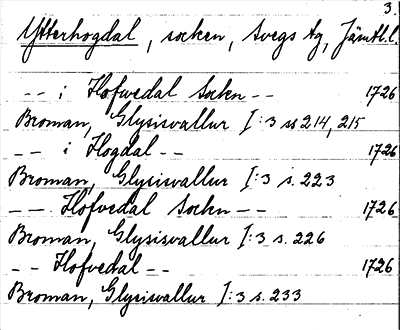 3.
Ytterhogdal, socken, Svegs tg, Jämtl.l.
-- i Hofwedal Sockn -- 1726
Broman, Glysisvallur I:3 ss 214, 215
-- i Hogdal -- 1726
Broman, Glysisvallur I:3 s. 223
-- Hofvedal Sockn -- 1726
Broman, Glysisvallur I:3 s. 226
-- Hofvedal -- 1726
Broman, Glysisvallur I:3 s. 233